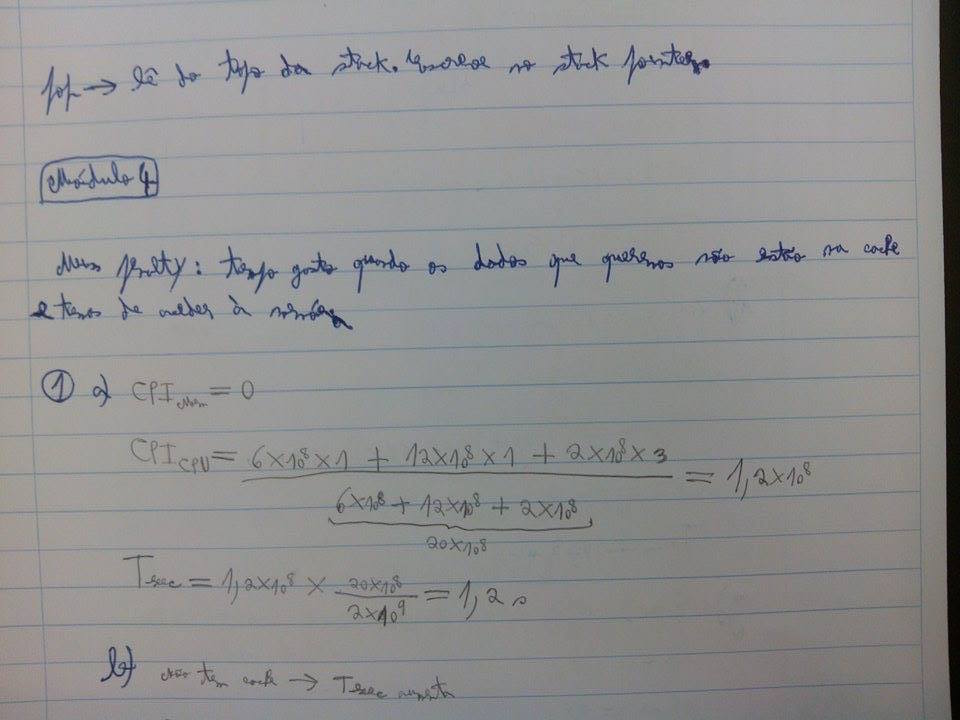 pop → lê do topo da stack. Escreve no stack pointer
Módulo 4
Miss penalty: tempo gasto quando os dados que queremos não estão na cache
e temos de aceder à memória
① a) CPI_Mem = 0
CPI_CPU = (6×10⁸×1 + 12×10⁸×1 + 2×10⁸×3) / (6×10⁸ + 12×10⁸ + 2×10⁸) = 1,2×10⁸
20×10⁸
Texec = 1,2×10⁸ × (20×10⁸ / 2×10⁹) = 1,2 s
b) Não tem cache → Texec aumenta